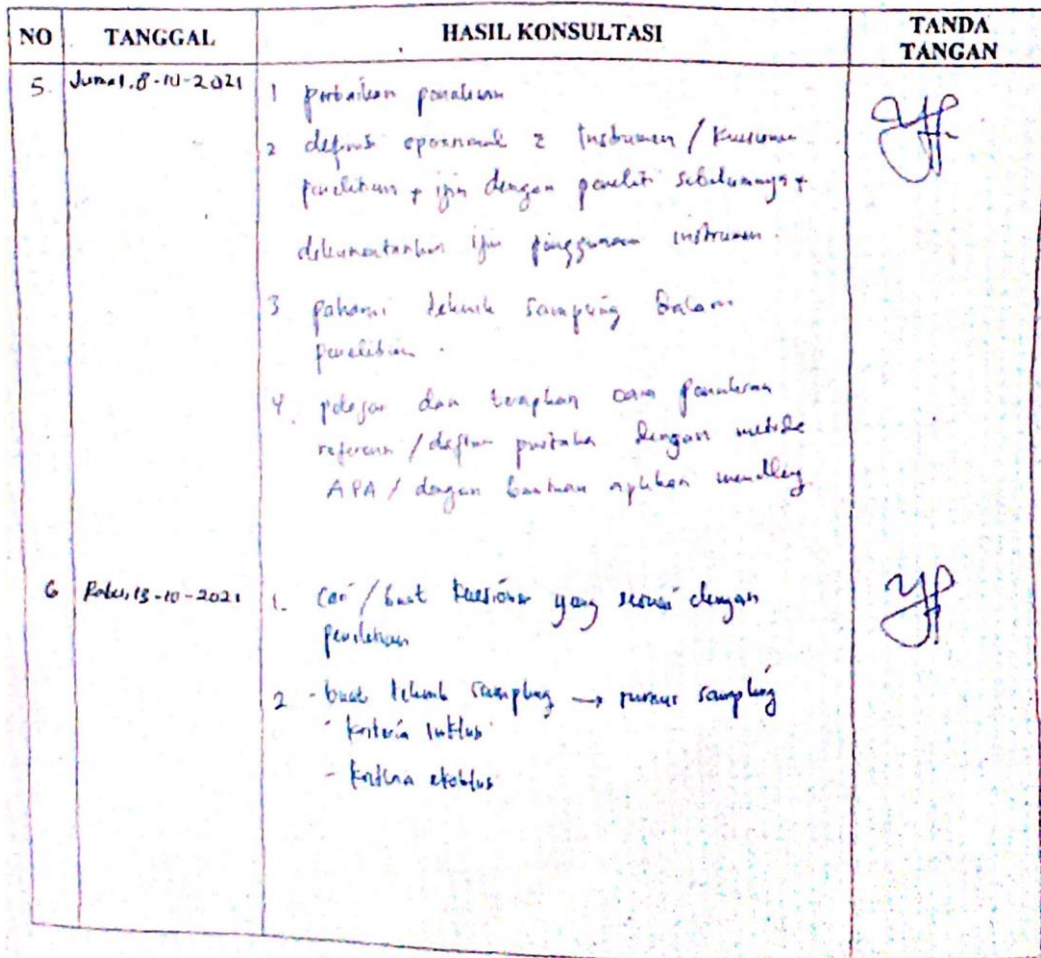 NO TANGGAL HASIL KONSULTASI TANDA TANGAN
5. Jumat, 8-10-2021
1 perbaikan penulisan
2 definisi operasional 2 Instrumen / Kuesioner
penelitian + ijin dengan peneliti sebelumnya +
dokumentasikan ijin penggunaan instrumen.
3 pahami teknik sampling dalam
penelitian.
4. pelajari dan terapkan cara penulisan
referensi / daftar pustaka dengan metode
APA / dengan bantuan aplikasi mendeley.
6 Rabu, 13-10-2021
1. Cari / buat kuesioner yang sesuai dengan
penelitian
2 - buat teknik sampling → rumus sampling
- kriteria inklusi
- kriteria eksklusi